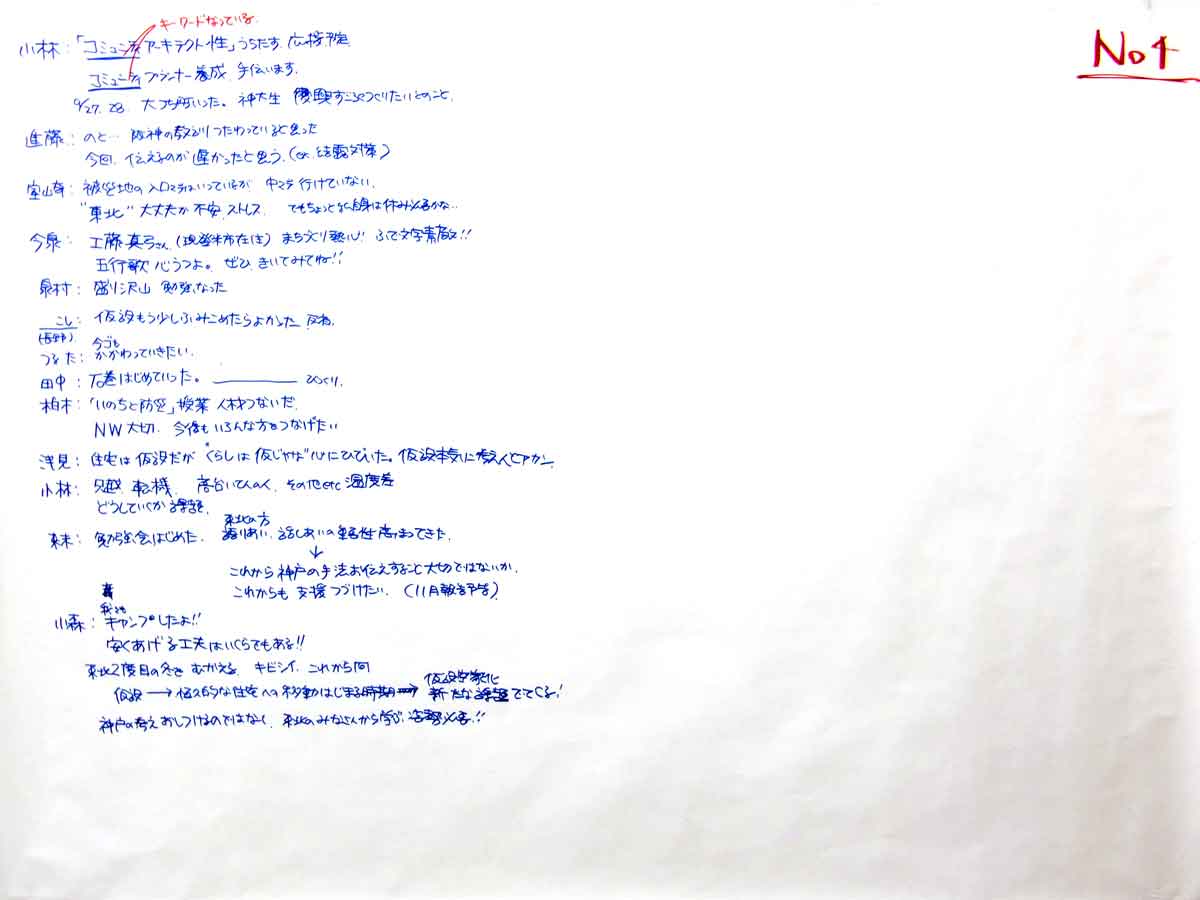 キーワードなっている。
No4
小林：「コミュニティアーキテクト性」うちだす。
コミュニティプランナー養成 手伝います。
9/27. 28 神大生 復興すごろくつくりたいとのこと。
進藤：のと… 阪神の教えがつたわっていると思った
今回、伝えるのが遅かったと思う。(ex. 結露対策)
室山寺：被災地の入口マデはいっているが 中マデ行けていない。
"東北" 大丈夫か不安、ストレス でもちょっと 休み必要かな…
今泉：工藤真弓さん(現登米市在住) まちづくり熱心! ふで文字素敵!!
五行歌 心うつよ。ぜひ きいてみてね!!
泉村：盛り沢山 勉強なった
こし：仮設もう少しふみこめたらよかった
(長野)
今ゴも
つるた：かかわっていきたい。
田中：石巻はじめていった。 びっくり。
柏木：「いのちと防災」授業 人材つないだ。
NW大切。今後もいろんな方をつなげたい
浅見：住宅は仮設だが "くらしは仮じゃない" 心にひびいた。仮設本気に考えんとアカン。
小林： 転機 高台いてんのく、その他etc 温度差
どうしていくか課題。
東末：勉強会はじめた。 東北の方
語りあい、話しあいの重要性高まってきた。
↓
これから神戸の手法お伝えすること大切ではないか。
これからも支援つづけたい。(11月報告予告)
我々も
小森：キャンプしたよ!!
安くあげる工夫はいくらでもある!!
東北2度目の冬をむかえる キビシイ、これから何
仮設学家化
仮設→恒久的な住宅への移動はじまる時期→新たな課題でてくる!
神戸の考えおしつけるのではなく、東北のみなさんから学ぶ姿勢必要!!